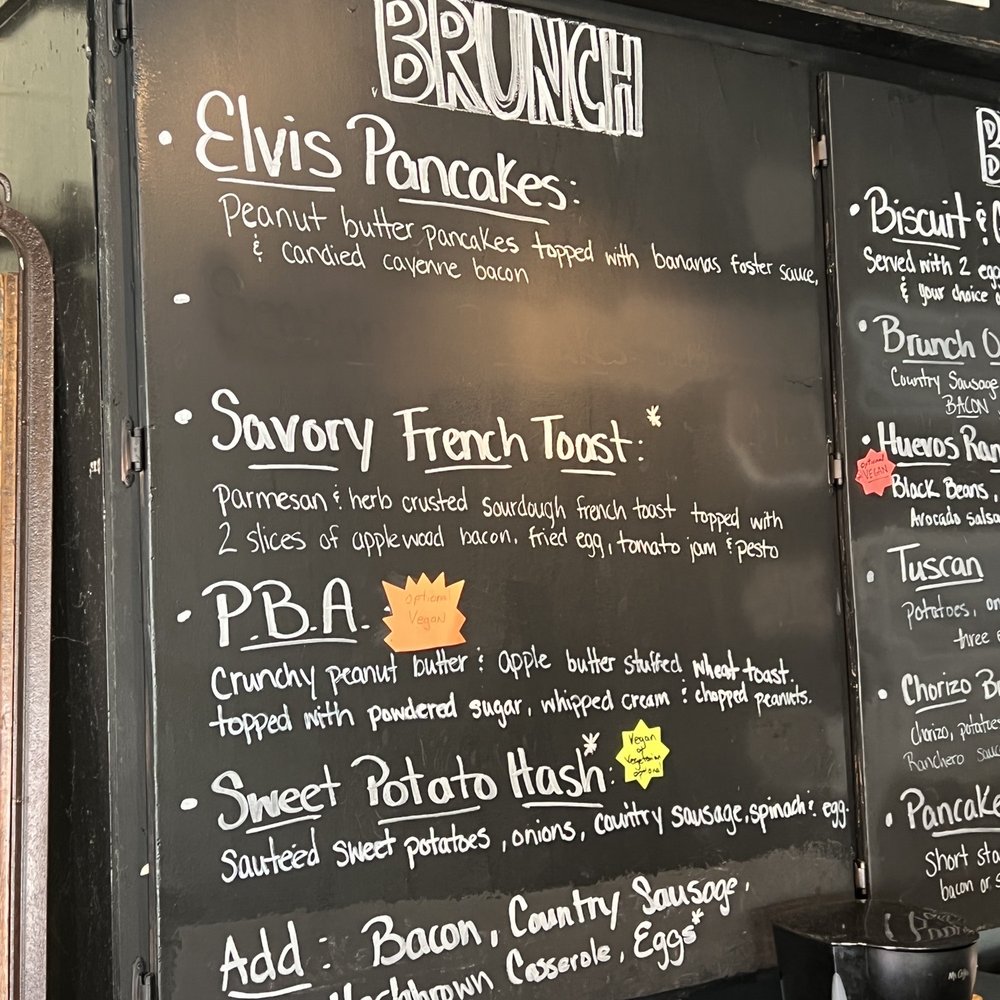 BRUNCH
• Elvis Pancakes:
Peanut butter pancakes topped with bananas foster sauce,
& candied cayenne bacon
•
• Savory French Toast:*
Parmesan & herb crusted sourdough french toast topped with
2 slices of applewood bacon, fried egg, tomato jam & pesto
• P.B.A.:
optional
Vegan
Crunchy peanut butter & apple butter stuffed wheat toast.
topped with powdered sugar, whipped cream & chopped peanuts.
• Sweet Potato Hash*:
Vegan
or
Vegetarian
optional
Sauteéd sweet potatoes, onions, country sausage, spinach & egg.
Add: Bacon, Country Sausage,
Hashbrown Casserole, Eggs*
• Biscuit &
Served with 2
& your choice
• Brunch
Country Sausage
BACON
• Huevos
optional
VEGAN
Black Beans,
Avocado salsa
• Tuscan
Potatoes,
three
• Chorizo
Chorizo, potatoes
Ranchero
•
Short
bacon or